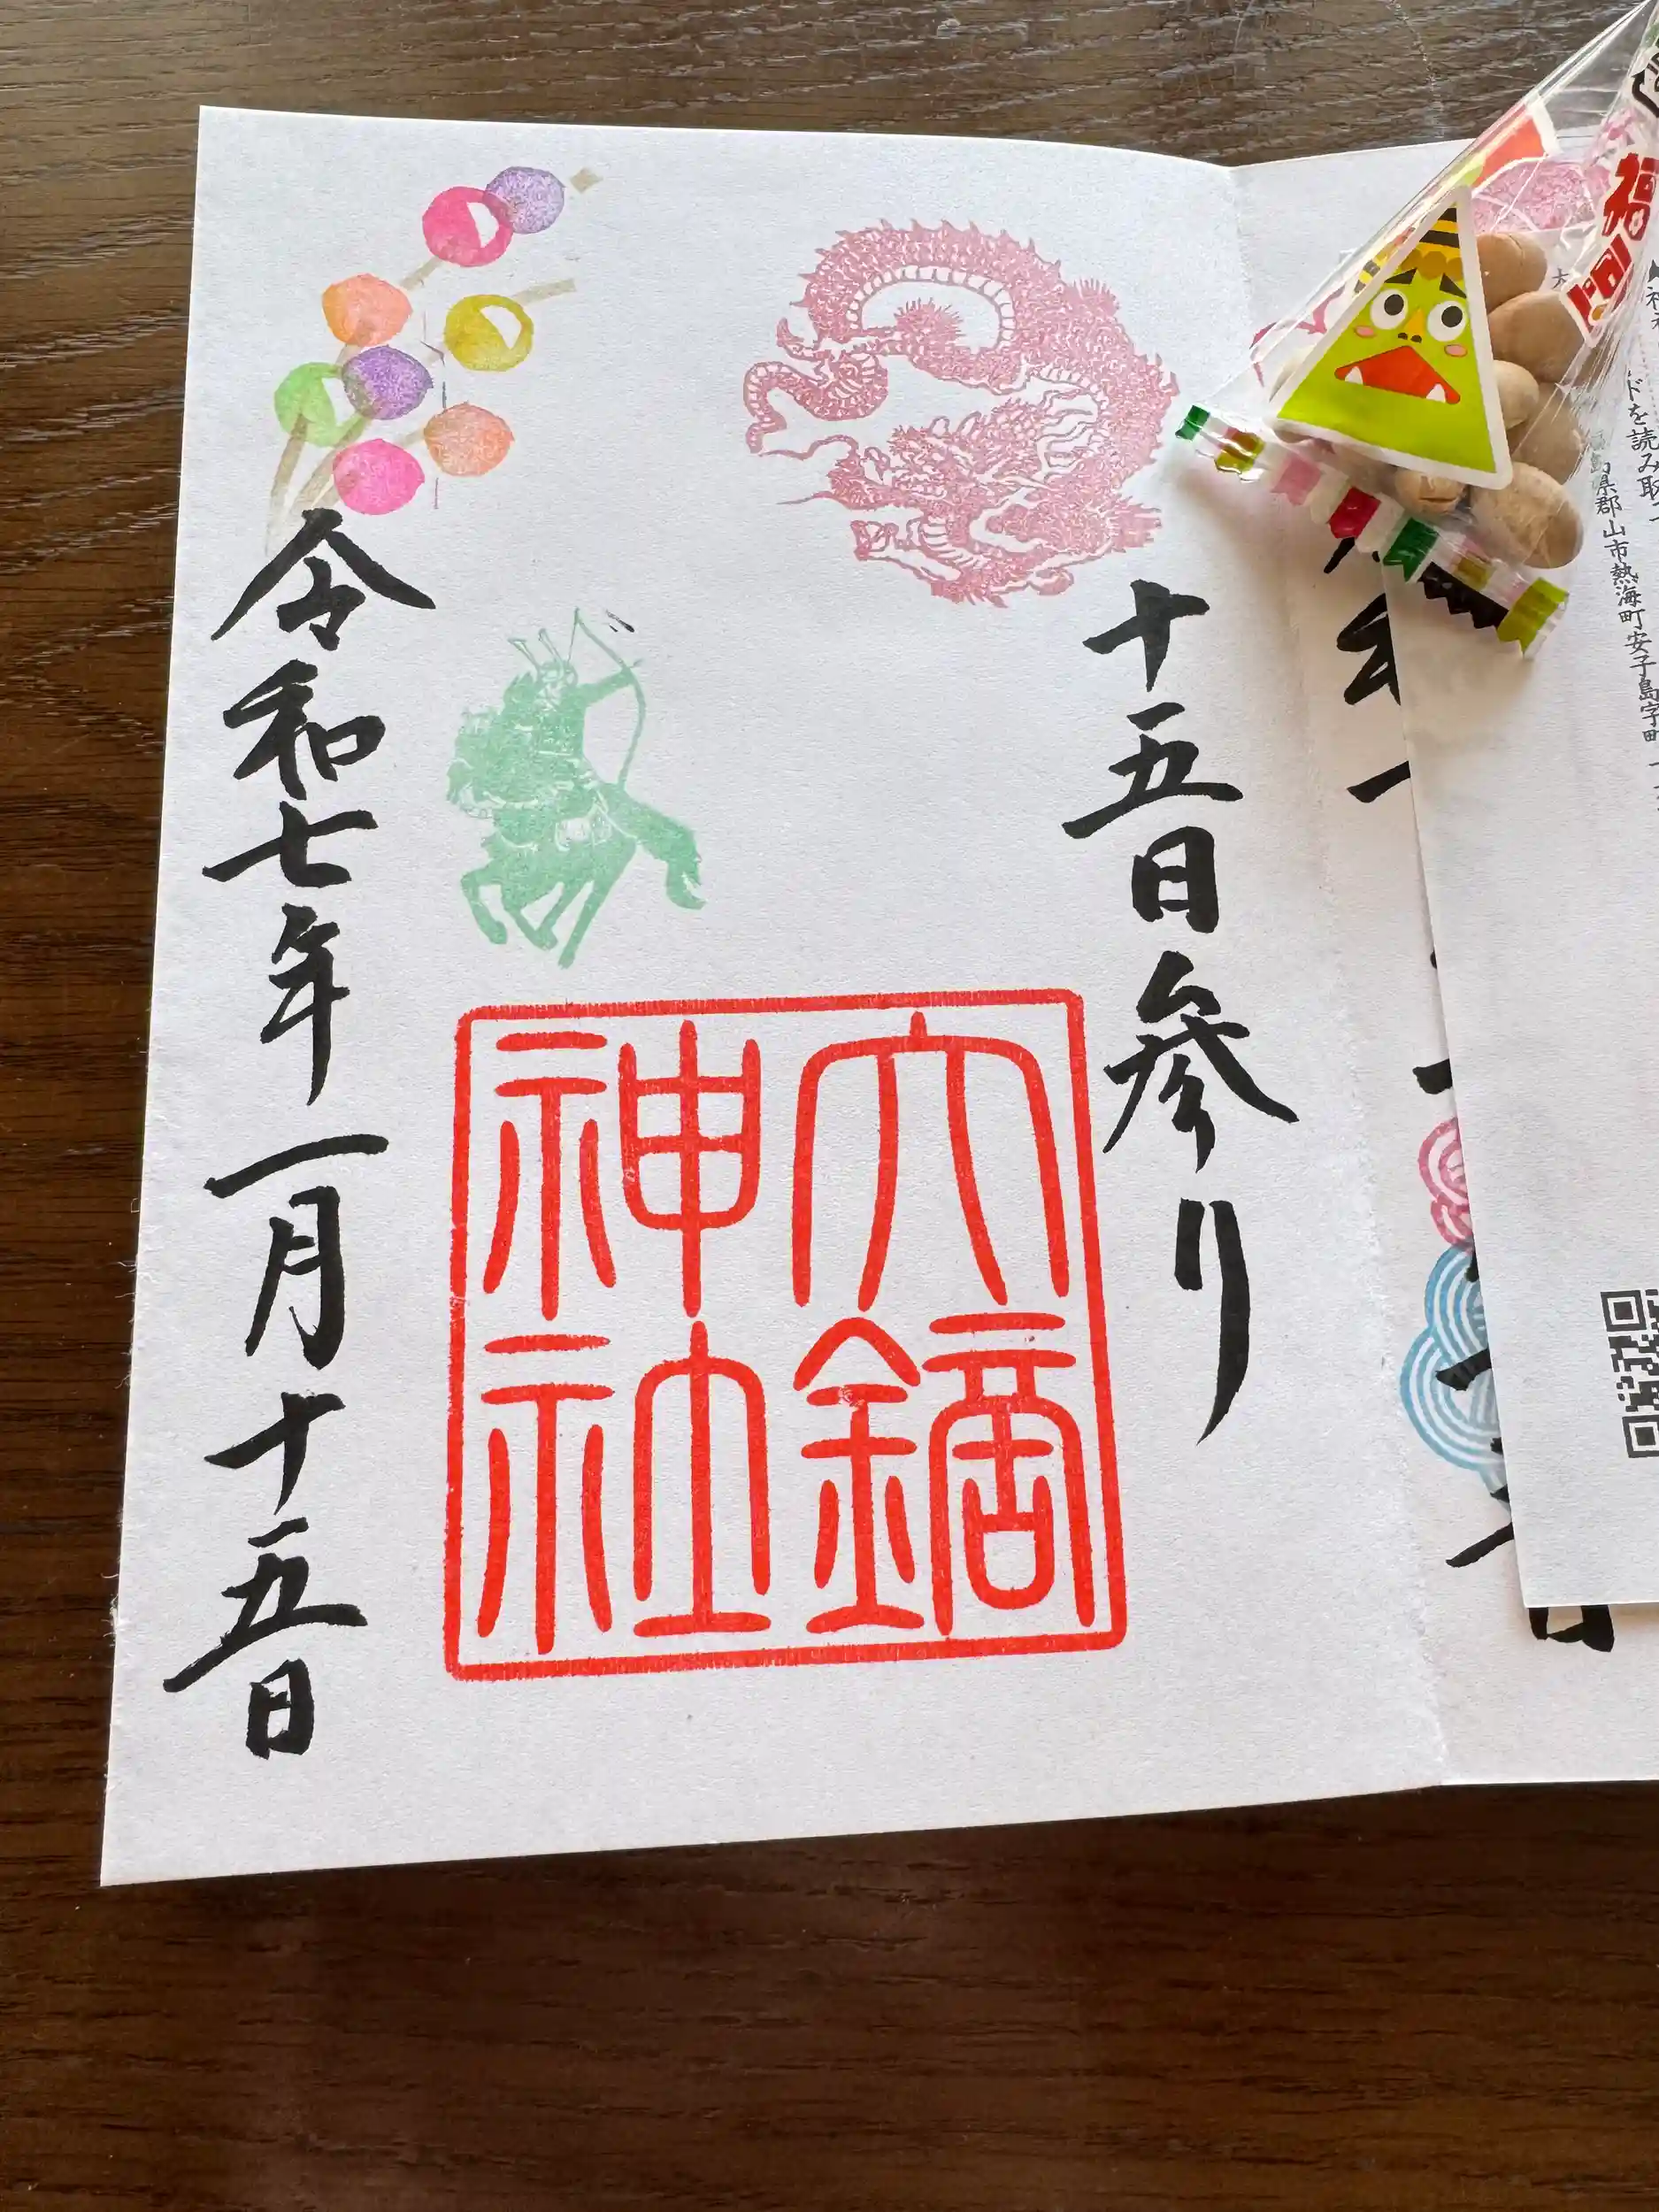 福
ドを読み取
県郡山市熱海町安子島字町
十五日参り
大鏑
神社
令和七年一月十五日